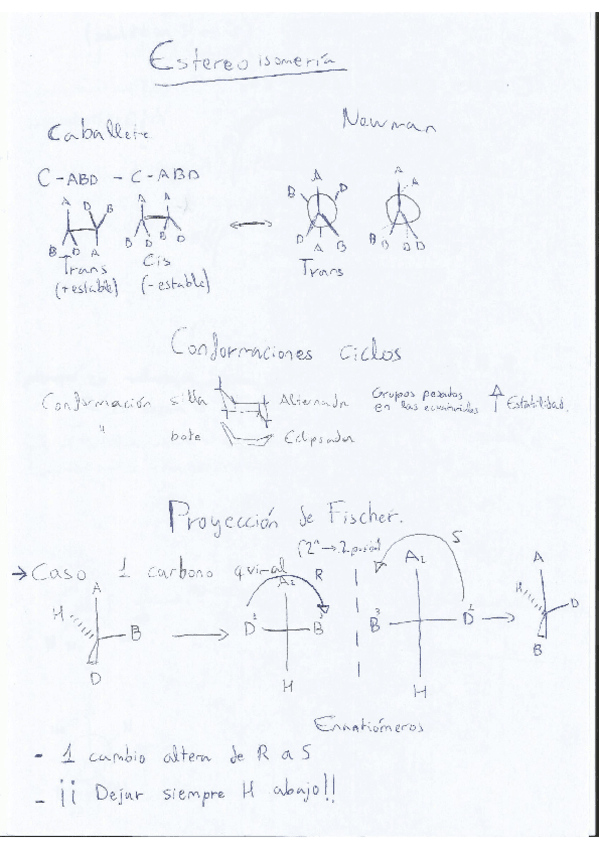 Estereoisomería
Caballete Newman
C-ABD - C-ABD
A D B A A
B D A B D B D
A
B D
D A B
A A
B D D D
Trans Cis Trans
(+estable) (-estable)
Conformaciones ciclos
Conformación silla Alternada Grupos pesados en las ecuatoriales ↑ Estabilidad.
" bote Eclipsada
Proyección de Fischer.
→ Caso 1 carbono quiral
R S
A H B D
D B H
A₂ B D H
A D B
Enantiómeros
- 1 cambio altera de R a S
- ¡¡ Dejar siempre H abajo!!